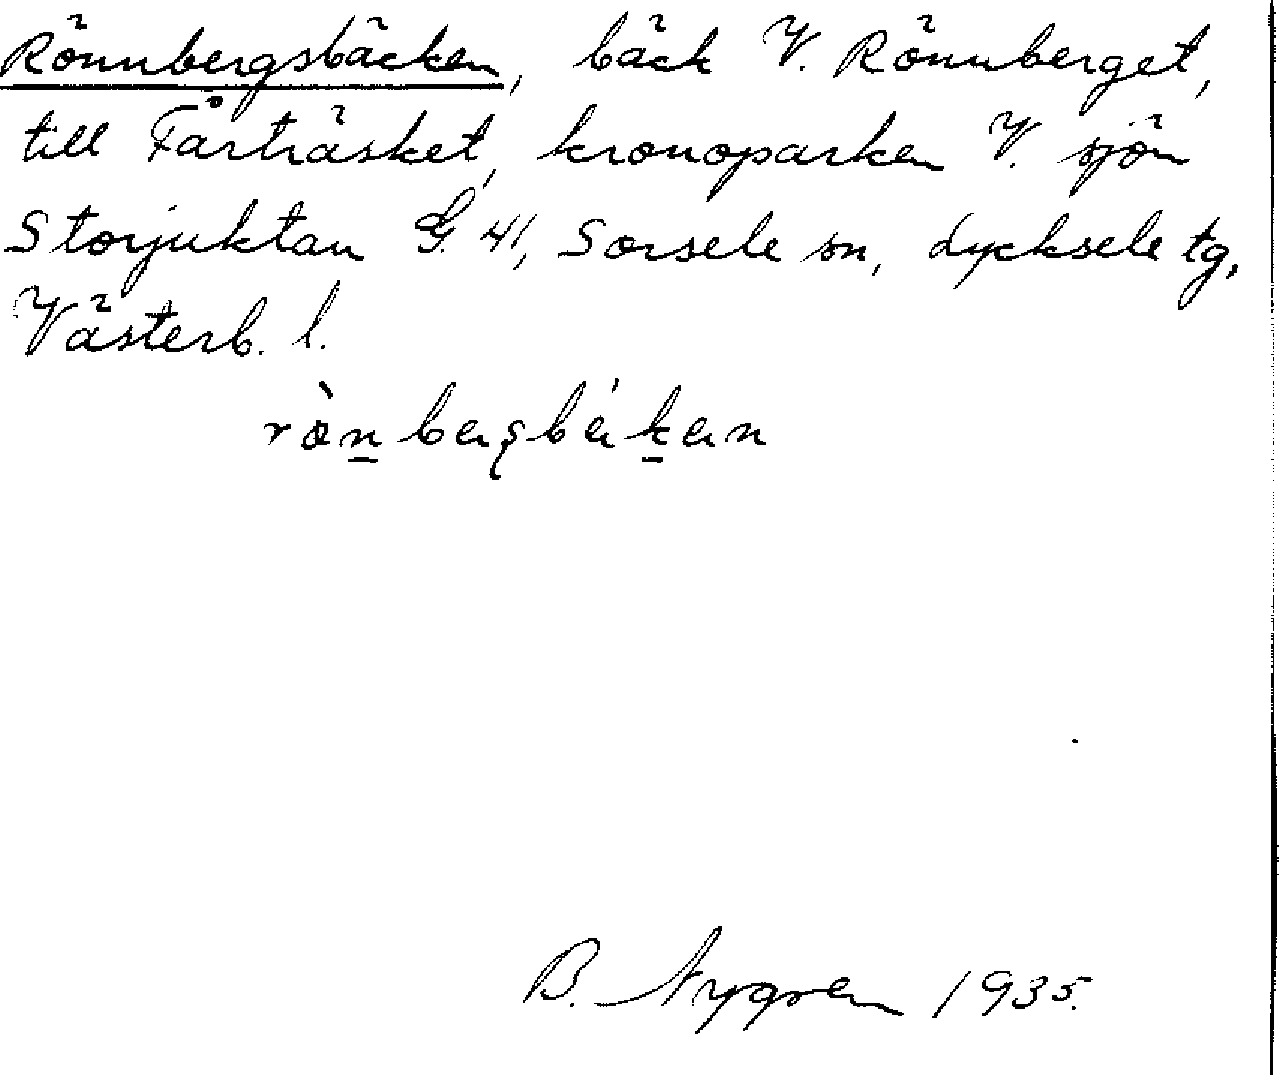 Rönnbergsbäcken, bäck V. Rönnberget,
till Fårträsket, kronoparken V. sjön
Storjuktan G. 41, Sorsele sn, Lycksele tg,
Västerb. l.
B. Nygren 1935.